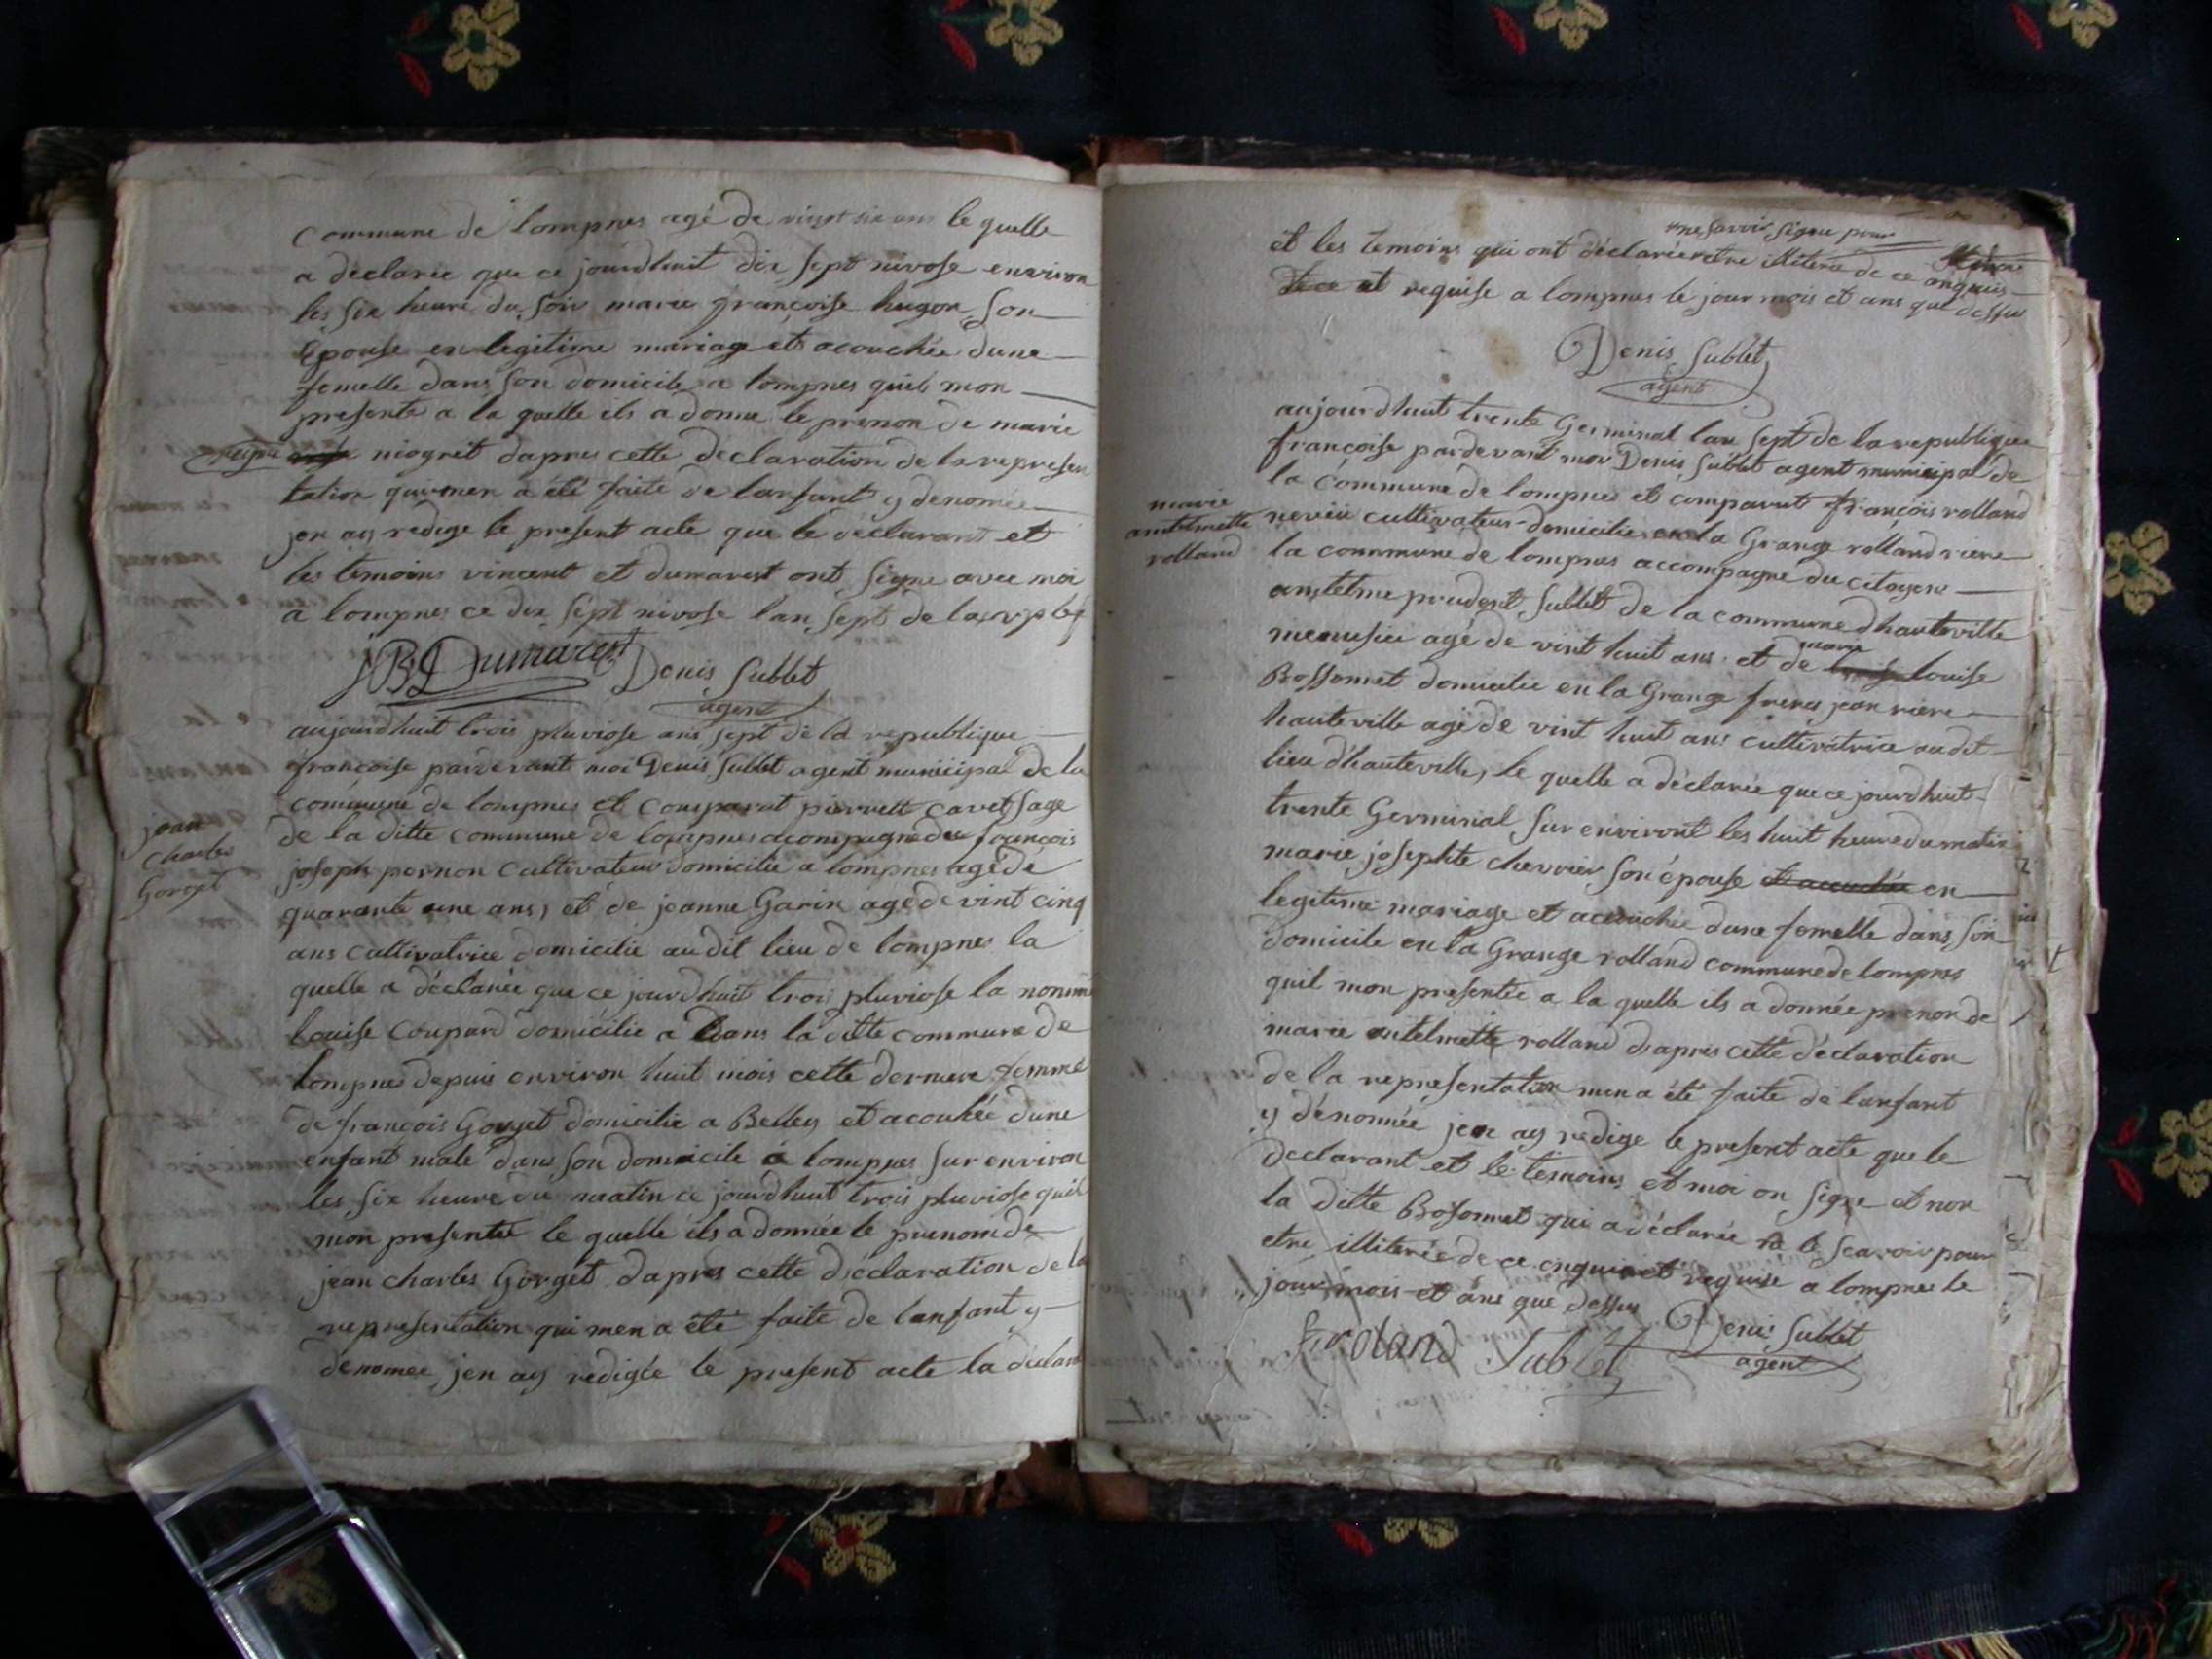 commune de lompnes agé de vingt six ans le quelle
a declarée que ce jourdhuit dix sept nivose environ
les six heure du soir marie françoise hugon son
Epouse en legitime mariage et acouchée dune
femelle dans son domicile a lompnes quil mon
presente a la quelle ils a donne le prenon de marie
niogret dapres cette declaration de la represen
tation quimen a été faite de lanfant y denomée
jen ay redige le present acte que le déclarant et
les temoins vincent et dumarest ont signe avec moi
a lompnes ce dix sept nivose lan sept de la rep
JB Dumarest Denis Sublet
agent
aujourdhuit trois pluviose ans sept de la republique
françoise pardevant moi Denis Sublet agent municipal de la
commune de lompnes et comparut pierrette cavet sage
de la ditte commune de lompnes acompagné de françois
jean
charles
Gorget
joseph pernon cultivateur domicilie a lompnes agé de
quarante une ans, et de jeanne Garin age de vint cinq
ans cultivatrice domicilie au dit lieu de lompnes la
quelle a déclarée que ce jourdhuit trois pluviose la nomme
louise Coupard domicilie a dans la ditte commune de
lompnes depuis environ huit mois cette derniere femme
de françois Gorget domicilie a Belley et acouhée dune
enfant male dans son domicile a lompnes sur environ
les six heure du matin ce jourdhuit trois pluviose quil
mon presentée le quelle ils a donnée le prenom de
jean charles Gorget dapres cette déclaration de la
representation qui men a été faite de lanfant y
denomée jen ay redigée le present acte la déclar
ne savoir signe pour
et les temoins qui ont déclarée etre illiteré de ce enquis
et requise a lompnes le jour mois et ans que dessus
Denis Sublet
agent
aujourdhuit trente Germinal lan sept de la republique
françoise pardevant moi Denis Sublet agent municipal de
la Commune de lompnes et comparut françois rolland
marie
antelmette
rolland
neveu cultivateur domicilie en la Grange rolland riere
la commune de lompnes accompagne du citoyens
antelme prudent Sublet de la commune dhauteville
menusie agé de vint huit ans et de marie louise
Bossonnet domicilie en la Grange freres jean riere
hauteville agé de vint huit ans cultivatrice audit
lieu dhauteville, le quelle a déclarée que ce jourdhuit
trente Germinal sur environt les huit heure du matin
marie josephte chevrier son épouse et accouchée en
legitime mariage et accouchée dune femelle dans son
domicile en la Grange rolland commune de lompnes
quil mon presentée a la quelle ils a donnée prenon de
marie antelmette rolland dapres cette déclaration
de la representation men a été faite de lanfant
y dénomée jen ay redige le present acte que le
declarant et le temoins et moi on signe et non
la ditte Bosonnet qui a déclarée ne le scavoir pour
etre illiterée de ce enquis et requise a lompnes le
jour mois et ans que dessus
f roland Sublet Denis Sublet
agent